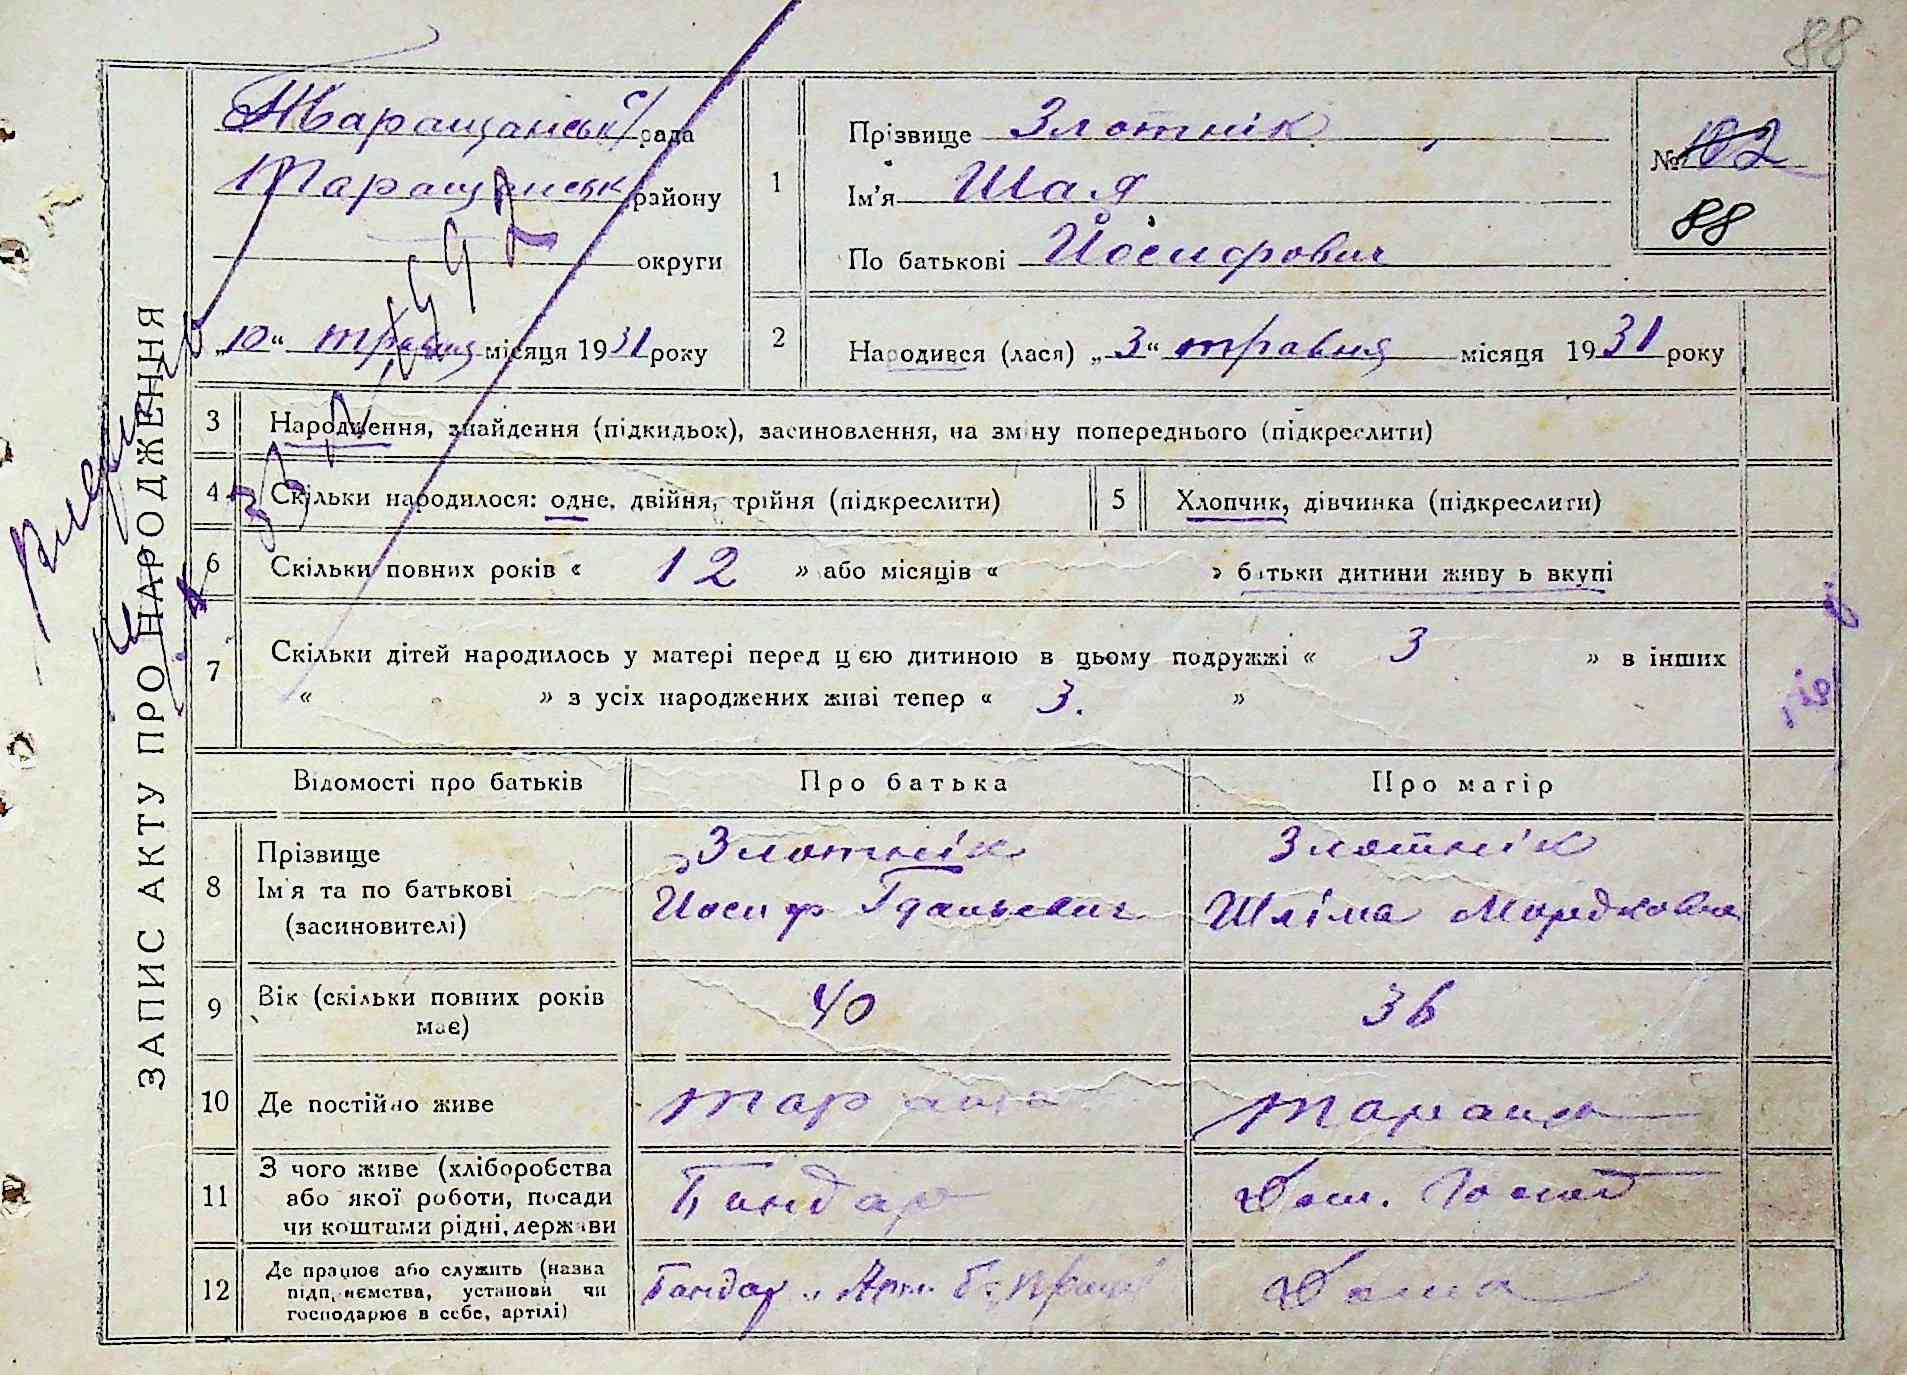 88
ЗАПИС АКТУ ПРО НАРОДЖЕННЯ
Таращанськ рада
Таращанськ району
округи
„10“ травня місяця 1931 року
1
Прізвище Злотнік
Ім'я Шая
По батькові Йосифович
№ 102
88
2
Народився (лася) „3“ травня місяця 1931 року
3 Народження, знайдення (підкидьок), засиновлення, на зміну попереднього (підкреслити)
4 Скільки народилося: одне, двійня, трійня (підкреслити)
5 Хлопчик, дівчинка (підкреслити)
6 Скільки повних років « 12 » або місяців « » батьки дитини живуть вкупі
7 Скільки дітей народилось у матері перед цією дитиною в цьому подружжі « 3 » в інших
« » з усіх народжених живі тепер « 3. »
Відомості про батьків Про батька Про матір
8 Прізвище Злотнік Злотнік
Ім'я та по батькові Йосиф Гдальевич Шліма Мордковна
(засиновителі)
9 Вік (скільки повних років має) 40 36
10 Де постійно живе Тараща Тараща
11 З чого живе (хліборобства
або якої роботи, посади
чи коштами рідні, держави
Бондар Дом. Господ
12 Де працює або служить (назва
підприємства, установи чи
господарює в себе, артілі)
Бондар Арт. Дома